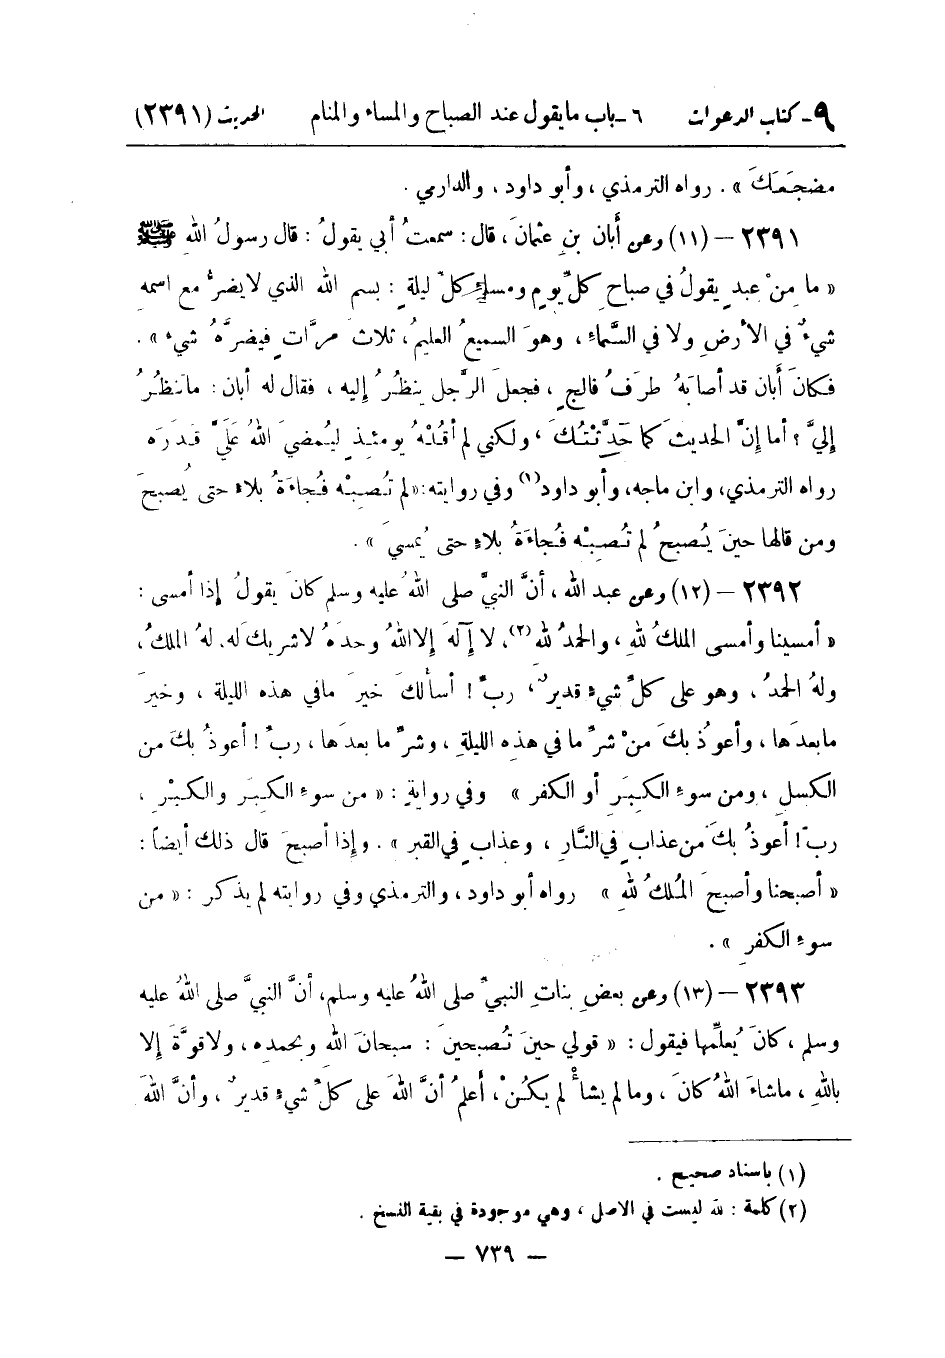 ٩ـ كتاب الدعوات ٦ ـ باب ما يقول عند الصباح والمساء والمنام الحديث (٢٣٩١)
مضجَعَكَ » . رواه الترمذي ، وأبو داود ، والدارمي .
٢٣٩١ – (١١) وعن أَبان بنِ عثمانَ ، قال : سمعتُ أبي يقولُ : قال رسولُ اللهِ ﷺ
« ما مِنْ عبدٍ يقولُ في صباحِ كلِّ يومٍ ومساءِ كلِّ ليلةٍ : بسم الله الذي لا يضرُّ مع اسمه
شيءٌ في الأرضِ ولا في السَّماءِ ، وهوَ السميعُ العليمُ ، ثلاثَ مرَّاتٍ فيضرَّهُ شيءٌ » .
فكانَ أَبان قد أصابَهُ طرَفُ فالجٍ ، فجعلَ الرَّجل ينظُرُ إليه ، فقال له أبان : ما تنظُرُ
إليَّ ؟ أما إنَّ الحديثَ كما حَدَّثْتُكَ ، ولكني لم أقُلْهُ يومئذٍ ليُمضيَ اللهُ عليَّ قدَرَه
رواه الترمذي ، وابن ماجه ، وأبو داود(١) وفي روايته : « لم تُصِبْه فُجاءَةُ بلاءٍ حتى يُصبحَ
ومن قالها حينَ يُصبحُ لم تُصِبْه فُجاءَةُ بلاءٍ حتى يُمسيَ » .
٢٣٩٢ – (١٢) وعن عبد الله ، أنَّ النبيَّ صلى اللهُ عليه وسلم كانَ يقولُ إذا أمسى :
« أمسينا وأمسى الملكُ للهِ ، والحمدُ لله(٢) ، لا إِلهَ إلا اللهُ وحدَهُ لا شريكَ له . لهُ الملكُ ،
ولهُ الحمدُ ، وهو على كلِّ شيءٍ قديرٌ ، ربِّ ! أسألكَ خيرَ ما في هذه الليلة ، وخيرَ
ما بعدَها ، وأعوذُ بكَ منْ شرِّ ما في هذه الليلةِ ، وشرِّ ما بعدَها ، ربِّ ! أعوذُ بكَ من
الكسلِ ، ومن سوءِ الكِبَرِ أو الكفر » وفي روايةٍ : « من سوءِ الكِبَرِ والكِبْرِ ،
ربِّ ! أعوذُ بكَ من عذابٍ في النَّارِ ، وعذابٍ في القبر » . وإذا أصبحَ قال ذلك أيضاً :
« أصبحنا وأصبحَ المُلكُ للهِ » رواه أبو داود ، والترمذي وفي روايته لم يذكر : « من
سوءِ الكفرِ » .
٢٣٩٣ – (١٣) وعن بعضِ بناتِ النبيِّ صلى اللهُ عليه وسلم ، أنَّ النبيَّ صلى اللهُ عليه
وسلم ، كانَ يُعلِّمها فيقول : « قولي حينَ تُصبحينَ : سبحانَ اللهِ وبحمده ، ولا قوَّةَ إلا
باللهِ ، ما شاءَ اللهُ كانَ ، وما لم يشأْ لم يكُنْ ، أعلمُ أنَّ اللهَ على كلِّ شيءٍ قديرٌ ، وأنَّ اللهَ
(١) باسناد صحيح .
(٢) كلمة : لله ليست في الاصل ، وهي موجودة في بقية النسخ .
– ٧٣٩ –